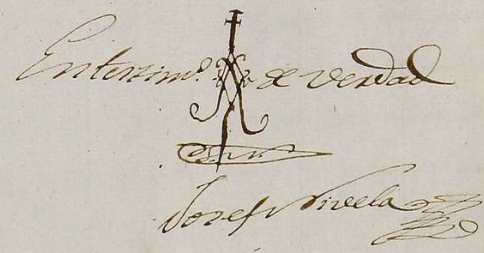 En testim.º de Verdad
Josef Nivela